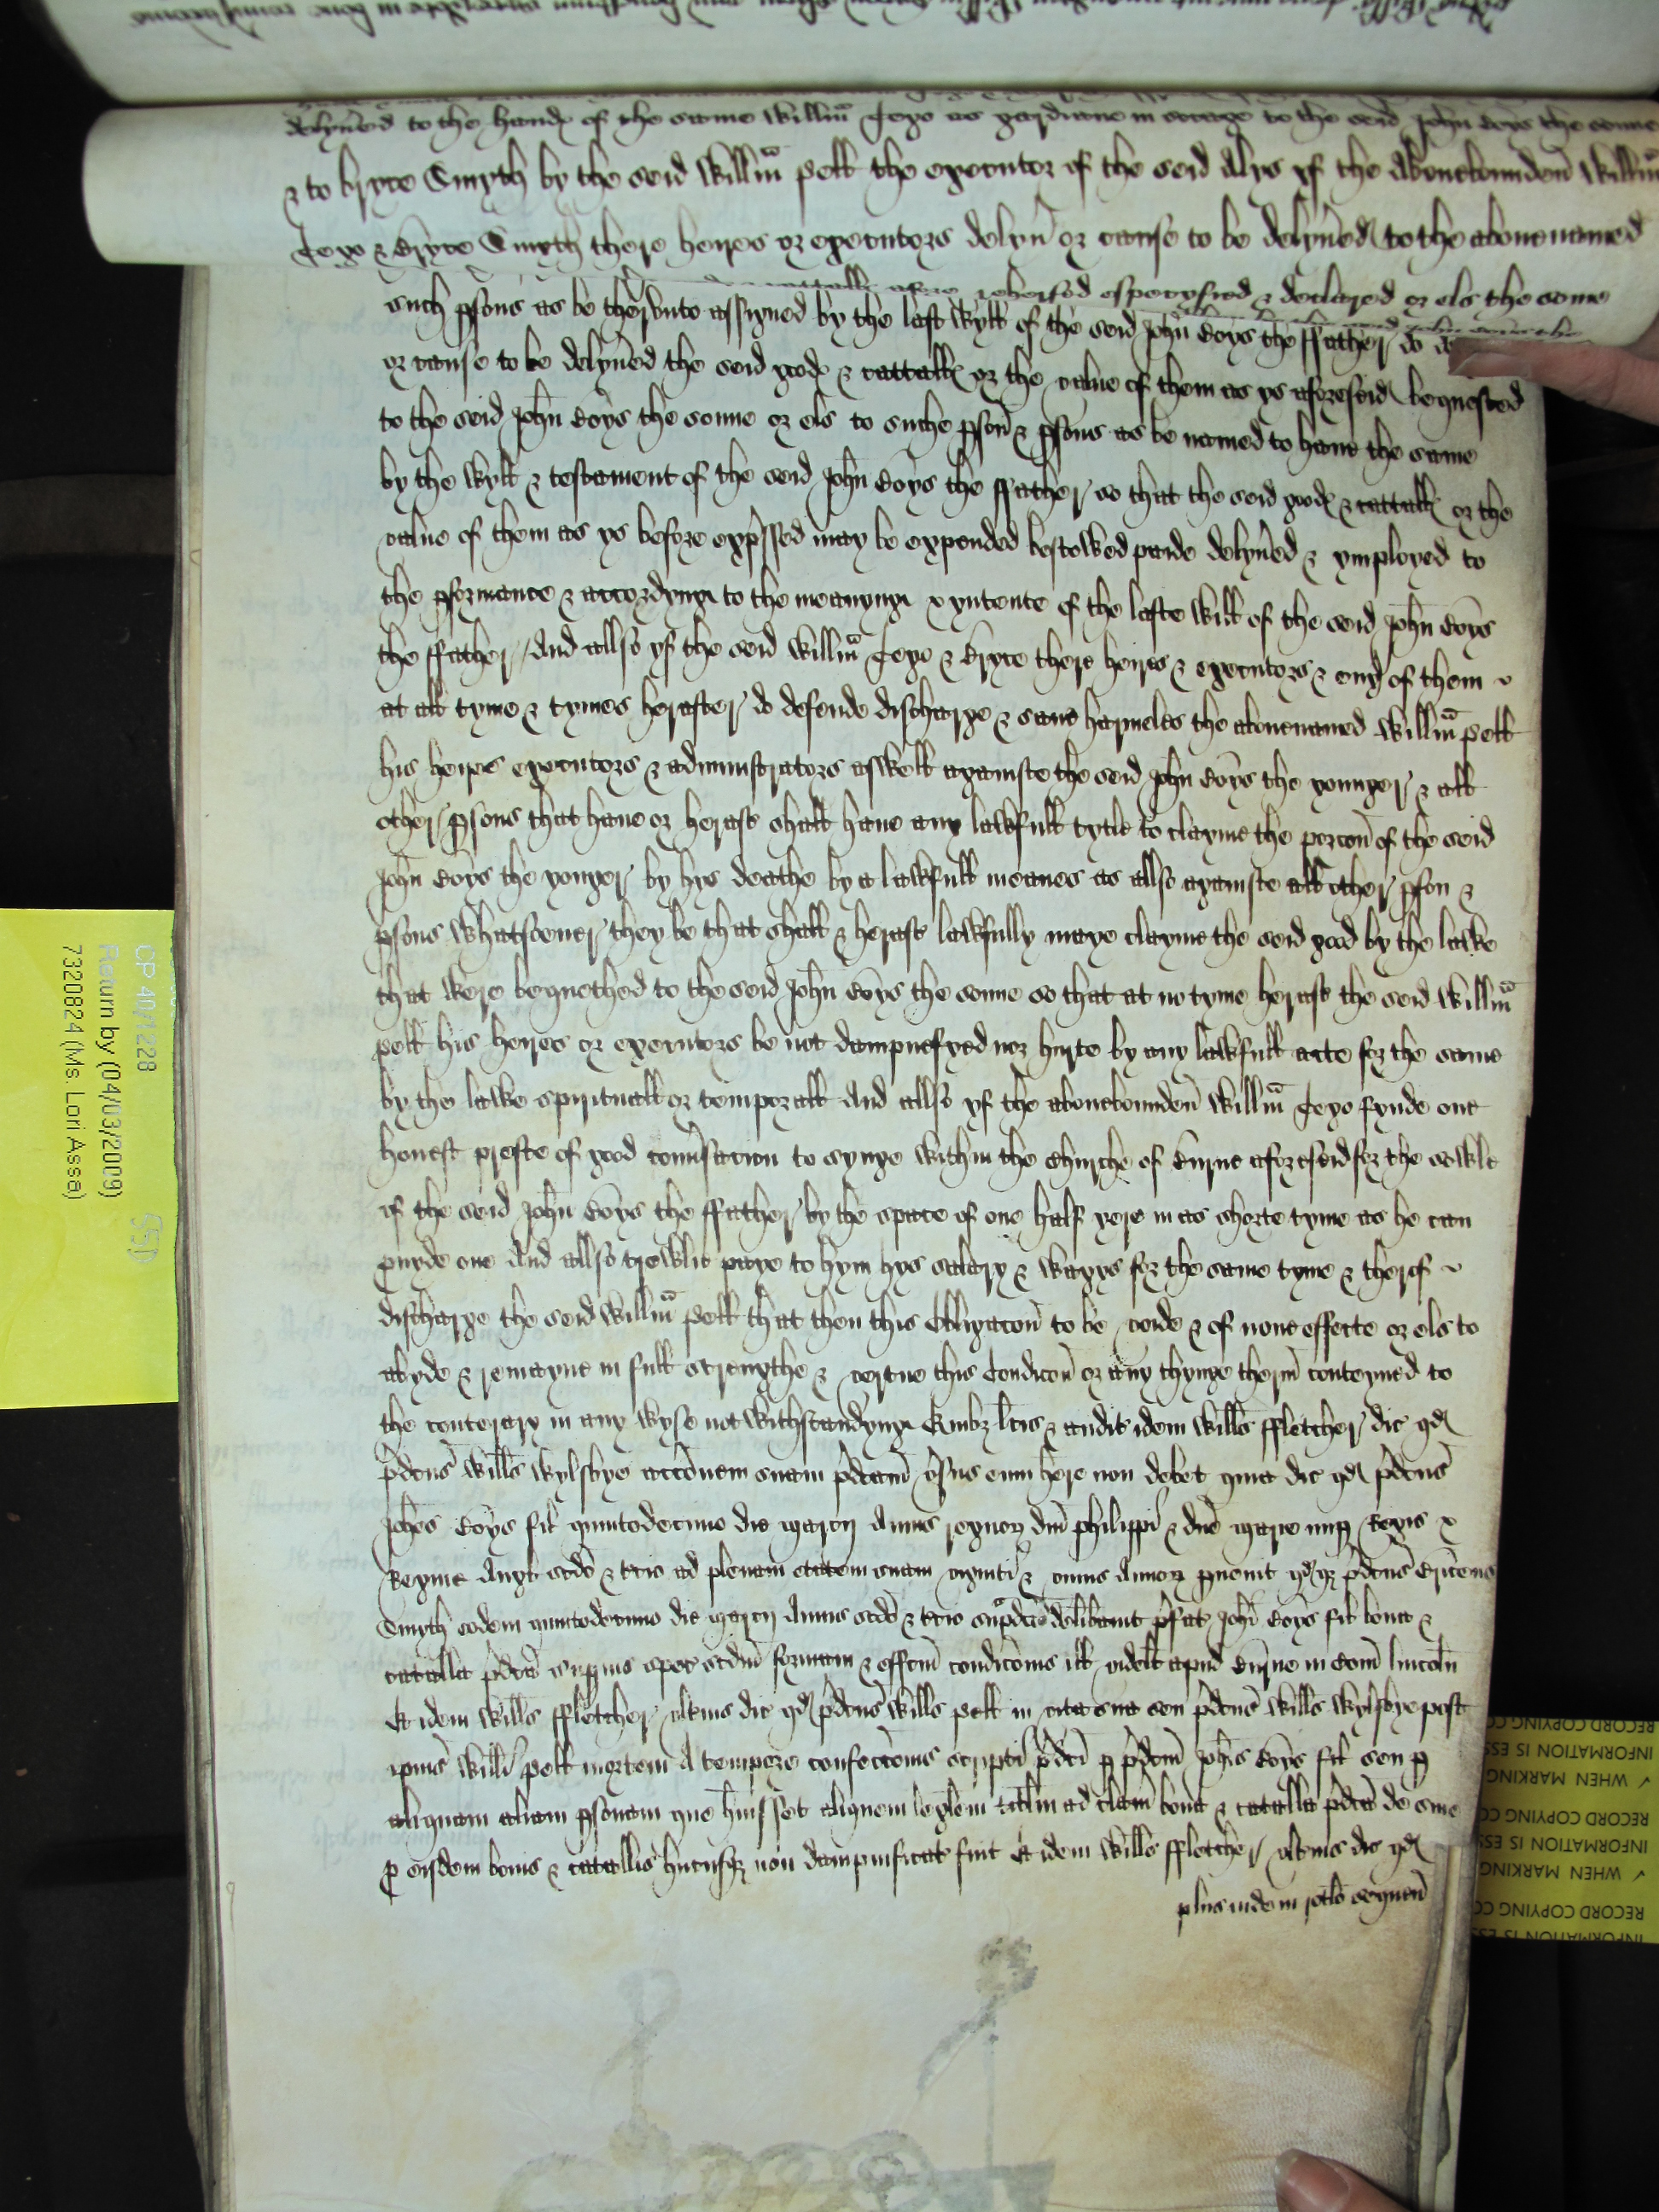 delyvˀed to the hand of the same Willm̃ Jeyo as gardiane in socage to the seid John Boys the sonne
& to bryce Smyth by the seid Willm̃ Pell the executor of the seid Alys yf the Abovebounden Willm̃
Jeyo & Bryce Smyth there heires or executors delyvˀ or cause to be delyvˀed to the abovenamed
afore rehersed especyfied & declared or els the same
such psons as be therunto assigned by the last Wyll of the seid John Boys the ffather do
or cause to be delyvˀed the seid good & cattall or the value of them as ys aforeseid bequested
to the seid John Boys the sonne or els to suche pson & psons as be named to have the same
by the Wyll & testament of the seid John Boys the ffather so that the seid good & cattall or the
value of them as ys before expssed may be expended bestowed paide delyvˀed & ymployed to
the pformance & accordyng to the meanyng & yntente of the laste Will of the seid John Boys
the ffather And allso yf the seid Willm̃ Jeyo & Bryce there heires & executors & evˀy of them
at all tyme & tymes heraster do defende discharge & save harmeles the abovenamed Willm̃ Pell
his heires executors & administrators aswell agaynste the seid John Boys the younger & all
other psons that have or herast shall have any lawfull tytle to clayme the porcon of the seid
John Boys the yonger by hys deathe by a lawfull meanes as allso agaynste all other pson &
psons Whatsoever they be that shall & herast lawfully maye clayme the seid good by the lawe
that Were bequethed to the seid John Boys the sonne so that at no tyme herast the seid Willm̃
Pell his heires or executors be not dampnefyed nor hurte by any lawfull acte for the same
by the lawe spirituall or temporall And allso yf the abovebounden Willm̃ Jeyo fynde one
honest preste of good convˀsacion to synge within the Churche of Burne aforeseid for the sowle
of the seid John Boys the ffather by the space of one half yere in as shorte tyme as he can
pvyde one And allso trewlie paye to hym hys salary & wagys for the same tyme & therof
discharge the seid Willm̃ Pell that then this Obligacon to be voide & of none effecte or els to
abyde & remayne in full strengthe & vertue this Condicon or any thynge therin conteyned to
the conterary in any Wyse not Withstandyng Quibz lcis & audit idem Willˀs ffletcher dic qd
pˀdcus Willˀs Wylsbye accōnem suam pˀdcam vˀsus eum hˀere non debet quia dic qd pˀdcus
Johˀes Boys fil quintodecimo die Marcij Annis regnoꝝ dni Philippi & dne Marie nup Regis &
Regine Angl scdo & tcio ad plenam etatem suam viginti & unius Annoꝝ pvenit qdqz pˀdcus Briceus
Smyth eodem quintodecimo die Marcij Annis scdo & tcio supˀdcis delibavit pˀfat Johi Boys fil bona &
catalla pˀdca supius spec scdm formam & effcm condicōnis ill videlt apud Burne in Com̃ Lincoln
Et idem Willˀs ffletcher ultius dic qd pˀdcus Willˀs Pell in vita sua seu pˀdcus Willˀs Wylsbye post
ipius Willi Pell mortem A tempore confeccōnis scripti pˀdci p pˀdcm Johˀem Boys fil seu p
aliquam aliam psonam que huisset aliquem legalem titlm ad clam̃ bona & catalla pˀdca de sive
p eisdem bonis & catallis hucusqz non dampnificat fuit Et idem Willˀs ffletcher ultius dic qd
plus inde in rotlo sequen
CP 40/1228
Return by (04/03/2009)
7320824 (Ms. Lori Assa)
(SSI)
RECORD COPYING
INFORMATION IS ESS
✓ WHEN MARKING
RECORD COPYING CO
INFORMATION IS ESS
✓ WHEN MARKING
RECORD COPYING CO
INFORMATION IS ES